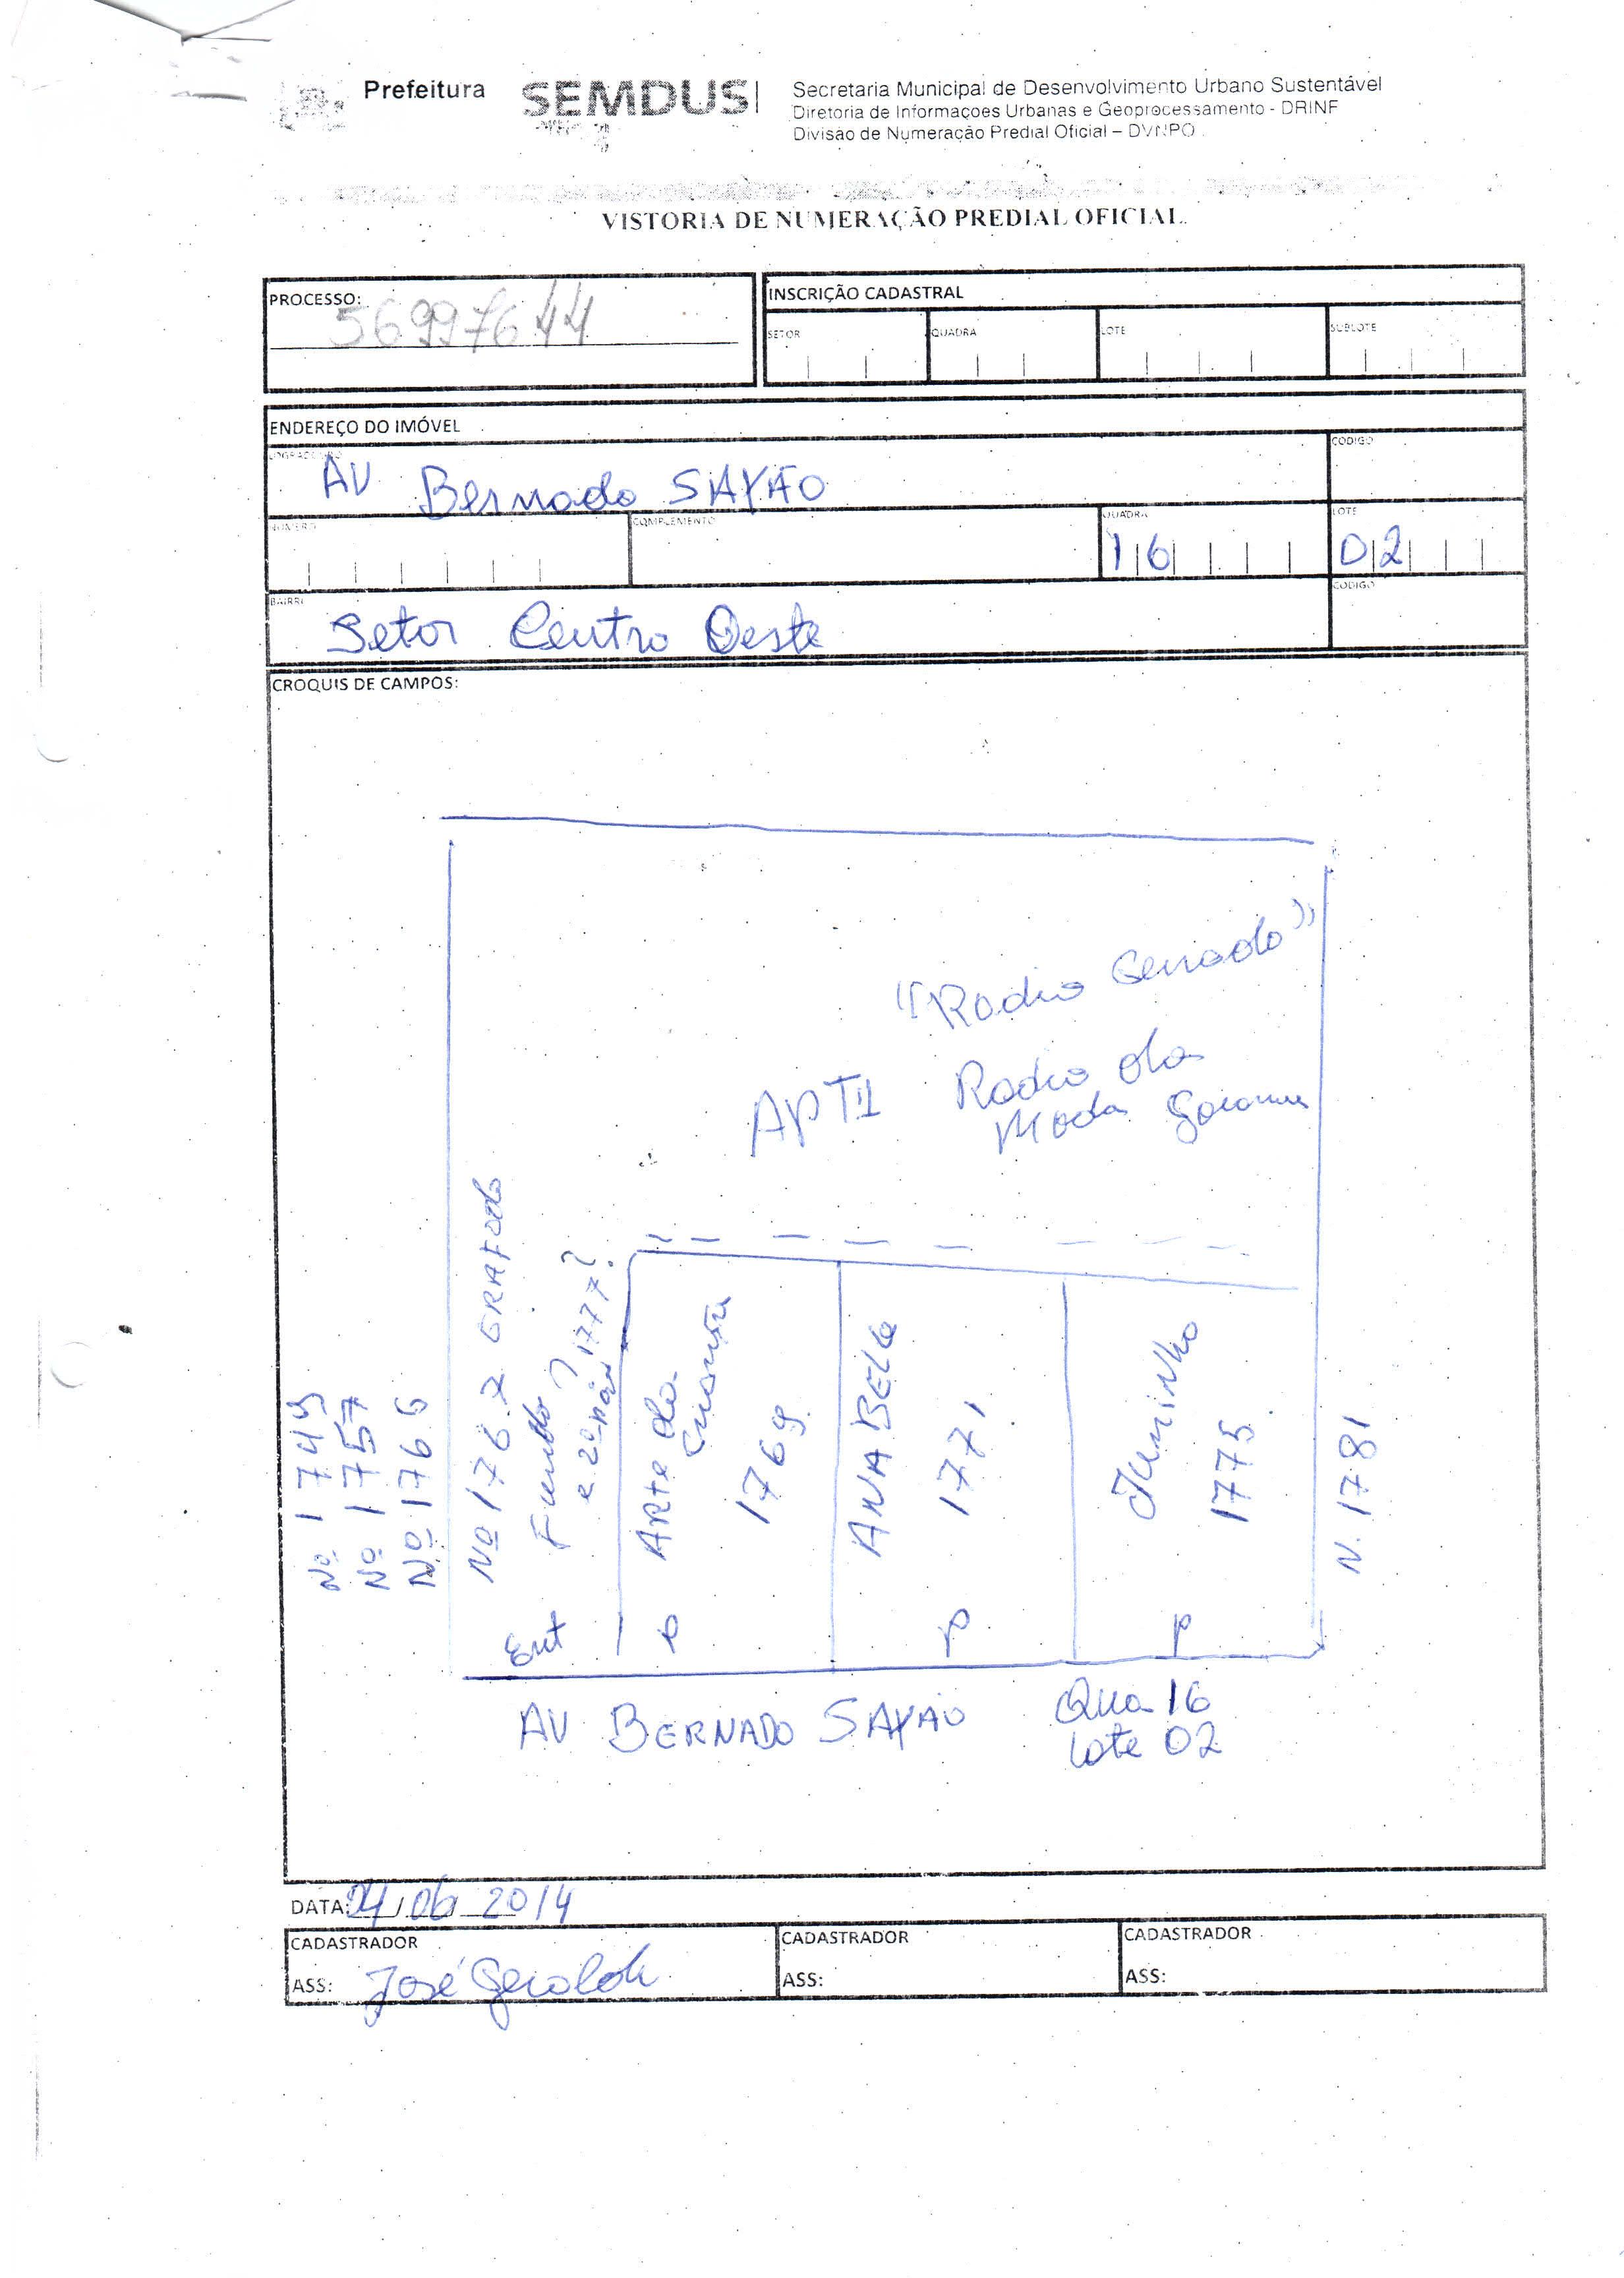 Prefeitura
SEMDUS
Secretaria Municipal de Desenvolvimento Urbano Sustentável
Diretoria de Informaçoes Urbanas e Geoprocessamento - DRINF
Divisão de Numeração Predial Oficial – DVNPO
VISTORIA DE NUMERAÇÃO PREDIAL OFICIAL
PROCESSO:
56997644
INSCRIÇÃO CADASTRAL
SETOR
QUADRA
LOTE
SUBLOTE
ENDEREÇO DO IMÓVEL
LOGRADOURO
CODIGO
AV Bernado SAYÃO
NUMERO
COMPLEMENTO
QUADRA
LOTE
16
02
BAIRRO
CODIGO
Setor Centro Oeste
CROQUIS DE CAMPOS:
"Radio Serrado"
APT II Radio da
Moda Goiania
Nº 1749
Nº 1757
Nº 1765
Nº 1767 GRAFADO
Fundo ?
e 2º 1777?
Ent
Arte da
1769
P
ANA BELA
1771
P
Juninho
1775
P
N. 1781
AV BERNADO SAYAO
Qua 16
Lote 02
DATA: 04/06/2014
CADASTRADOR
ASS: José Geraldo
CADASTRADOR
ASS:
CADASTRADOR
ASS: